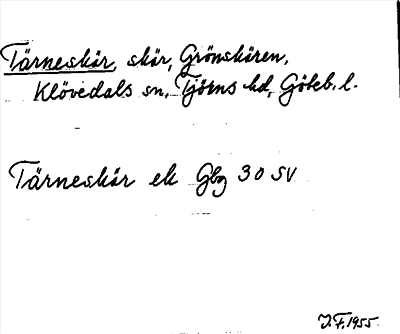 Tärneskär, skär, Grönskären,
Klövedals sn, Tjörns hd, Göteb. l.
Tärneskär ek Gbg 30 SV
J.F. 1955.